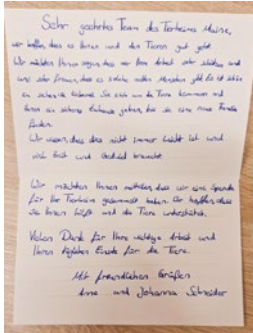 Sehr geehrtes Team des Tierheims Mainz,
wir hoffen, dass es Ihnen und den Tieren gut geht.
Wir möchten Ihnen sagen, dass wir Ihre Arbeit sehr schätzen und
uns sehr freuen, dass es solche netten Menschen gibt. Es ist schön
zu sehen, wie Sie sich um die Tiere kümmern und
ihnen ein sicheres Zuhause geben, bis sie eine neue Familie
finden.
Wir wissen, dass das nicht immer leicht ist und
viel Kraft und Geduld braucht.
Wir möchten Ihnen mitteilen, dass wir eine Spende
für Ihr Tierheim gesammelt haben. Wir hoffen, dass
sie Ihnen hilft und die Tiere unterstützt.
Vielen Dank für Ihre wichtige Arbeit und
Ihren täglichen Einsatz für die Tiere.
Mit freundlichen Grüßen
Anne und Johanna Schneider